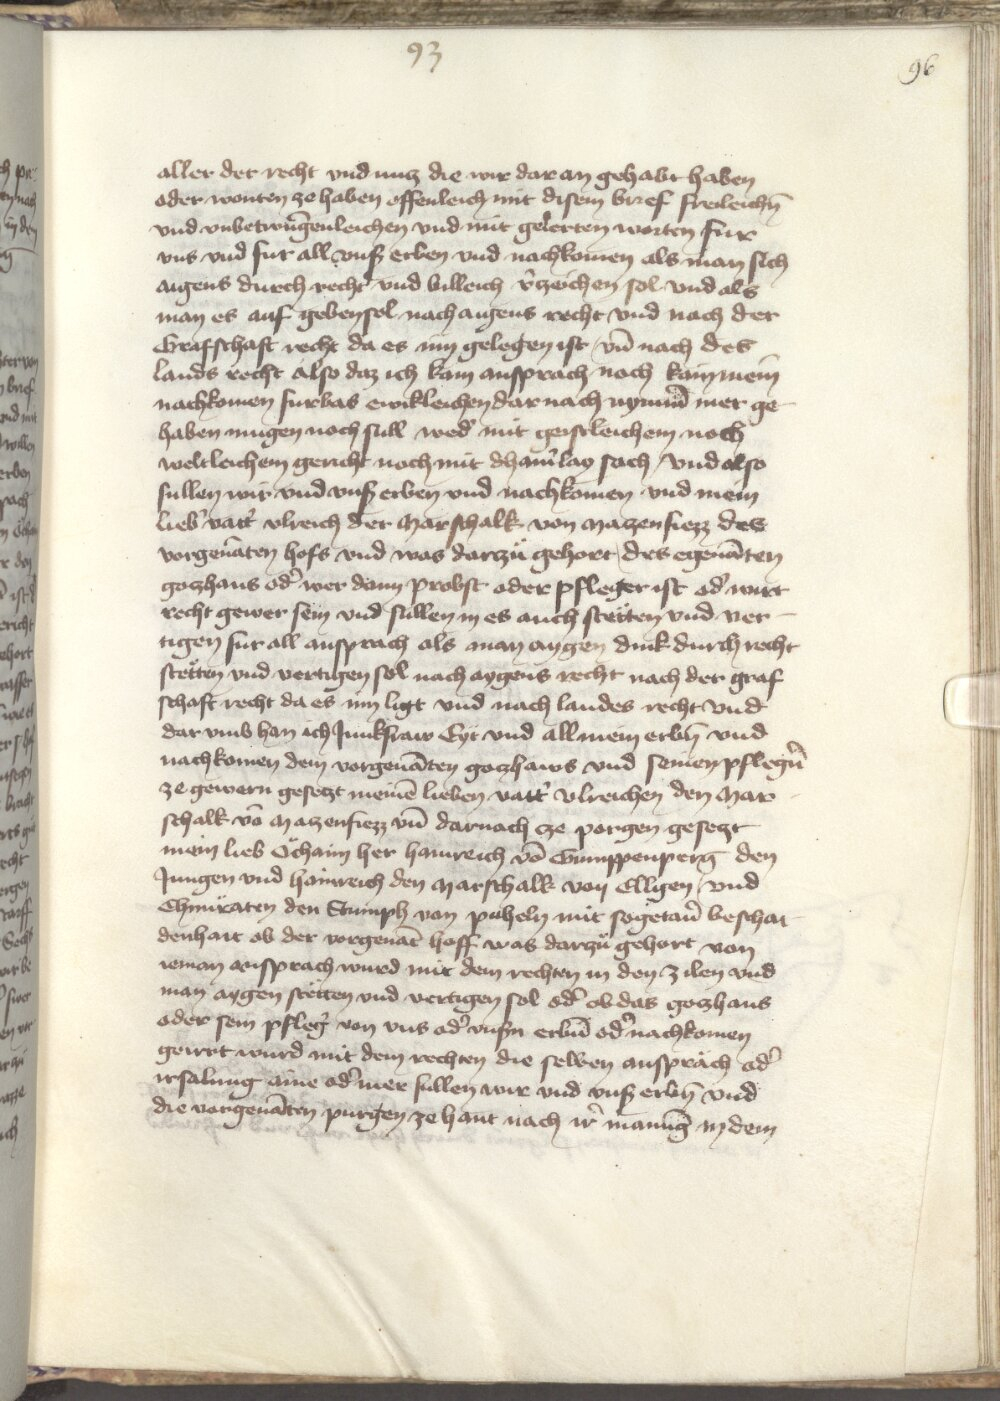 93
96
aller der recht vnd nucz die wir dar an gehabt haben
oder wonten ze haben offenleich mit disem brief freileichn̄
vnd vnbetwūgenleichen vnd mit gelerten worten fur
vns vnd fur all vnsß erben vnd nachkomen als man sich
aigens durch recht vnd billeich v̓czeichen sol vnd als
man es auf geben sol nach aigens recht vnd nach der
Grafschaft recht da es inn gelegen ist vn̄ nach des
lands recht also daz ich kain ansprach noch kain mein̄
nachkomen furbas ewikleichen dar nach nymm̄ mer ge-
haben mugen noch sull wed̓ mit geistleichem noch
weltleichem gericht noch mit dhain̓lay sach vnd also
sullen wir vnd vnsß erben vnd nachkomen vnd mein
lieb̓ vatt̓ vlreich der Marschalk von Maczensiezz des
vorgenāten hofs vnd was darzů gehort des egenāten
goczhaus od̓ wer dann probst oder pfleger ist od̓ wirt
recht gewer sein vnd sullen in es auch stetten vnd ver-
tigen fur all ansprach als man aygen dink durch recht
stetten vnd vertigen sol nach aygens recht nach der graf
schaft recht da es inn ligt vnd nach landes recht vnd
dar vmb han ich Junkfraw Eyt vnd all mein erbn̄ vnd
nachkomen dem vorgenāten goczhaws vnd seinen pfleg̓n
ze gewern gesetzt meinē lieben vatt̓ vlreichen den Mar-
schalk vō Maczensiezz vn̄ darnach cze porgen gesetzt
mein lieb Ochaim her hainreich vō Gumppenperg den
Jungen vnd hainreich den Marschalk von Ellgen vnd
Chunraten den Stumph von puheln mit sogetan̄ beschai-
denhait ob der vorgenāt hoff was darzů gehort von
ieman ansprach wurd mit dem rechten in den zilen vnd
man aygen stetten vnd vertigen sol od̓ ob das goczhaus
oder sein pfleg̓ von vns od̓ vnsn erbn̄ od̓ nachkomen
geirrt wurd mit dem rechten die selben ansprach od̓
irsalung aine od̓ mer sullen wir vnd vnsß erbn̄ vnd
die vorgenāten purgen ze hant nach ir̓ manūg in dem